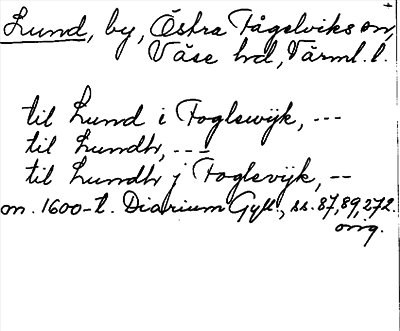 Lund, by, Östra Fågelviks sn,
Väse hd, Värml. l.
til Lund i Foglewijk, ---
til Lundh, ---
til Lundh j Foglevijk, --
m. 1600-t. Diarium Gyll., ss. 87, 89, 272.
orig.